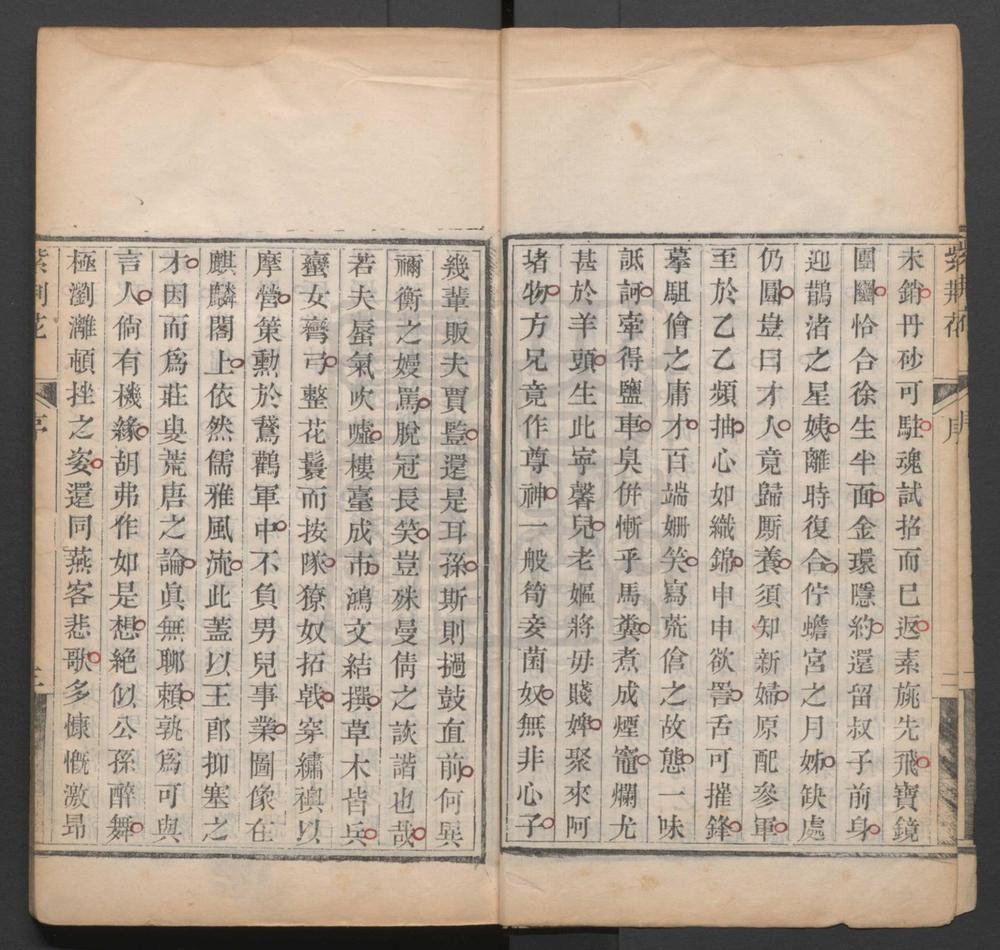 紫荆花
序
二
未銷丹砂可駐魂試招而已返素旐先飛寶鏡
團圞恰合徐生半面金環隱約還留叔子前身
迎鵲渚之星姨離時復合佇蟾宮之月姊缺處
仍圓豈曰才人竟歸厮養須知新婦原配參軍
至於乙乙頻抽心如織錦申申欲詈舌可摧鋒
摹駔儈之庸才百端姍笑寫荒傖之故態一味
詆訶牽得鹽車臭併慚乎馬糞煮成煙竈爛尤
甚於羊頭生此寧馨兒老嫗將毋賤婢聚來阿
堵物方兄竟作尊神一般筍妾菌奴無非心子
幾輩販夫賈豎還是耳孫斯則撾鼓直前何異
禰衡之嫚罵脫冠長笑豈殊曼倩之詼諧也哉
若夫蜃氣吹噓樓臺成市鴻文結撰草木皆兵
蠻女彎弓整花鬟而按隊獠奴拓戟穿繡襖以
摩營策勳於鵞鸛軍中不負男兒事業圖像在
麒麟閣上依然儒雅風流此蓋以王郎抑塞之
才因而爲莊叟荒唐之論眞無聊賴孰爲可與
言人倘有機緣胡弗作如是想絕似公孫醉舞
極瀏灕頓挫之姿還同燕客悲歌多慷慨激昂
紫荆花
序
二